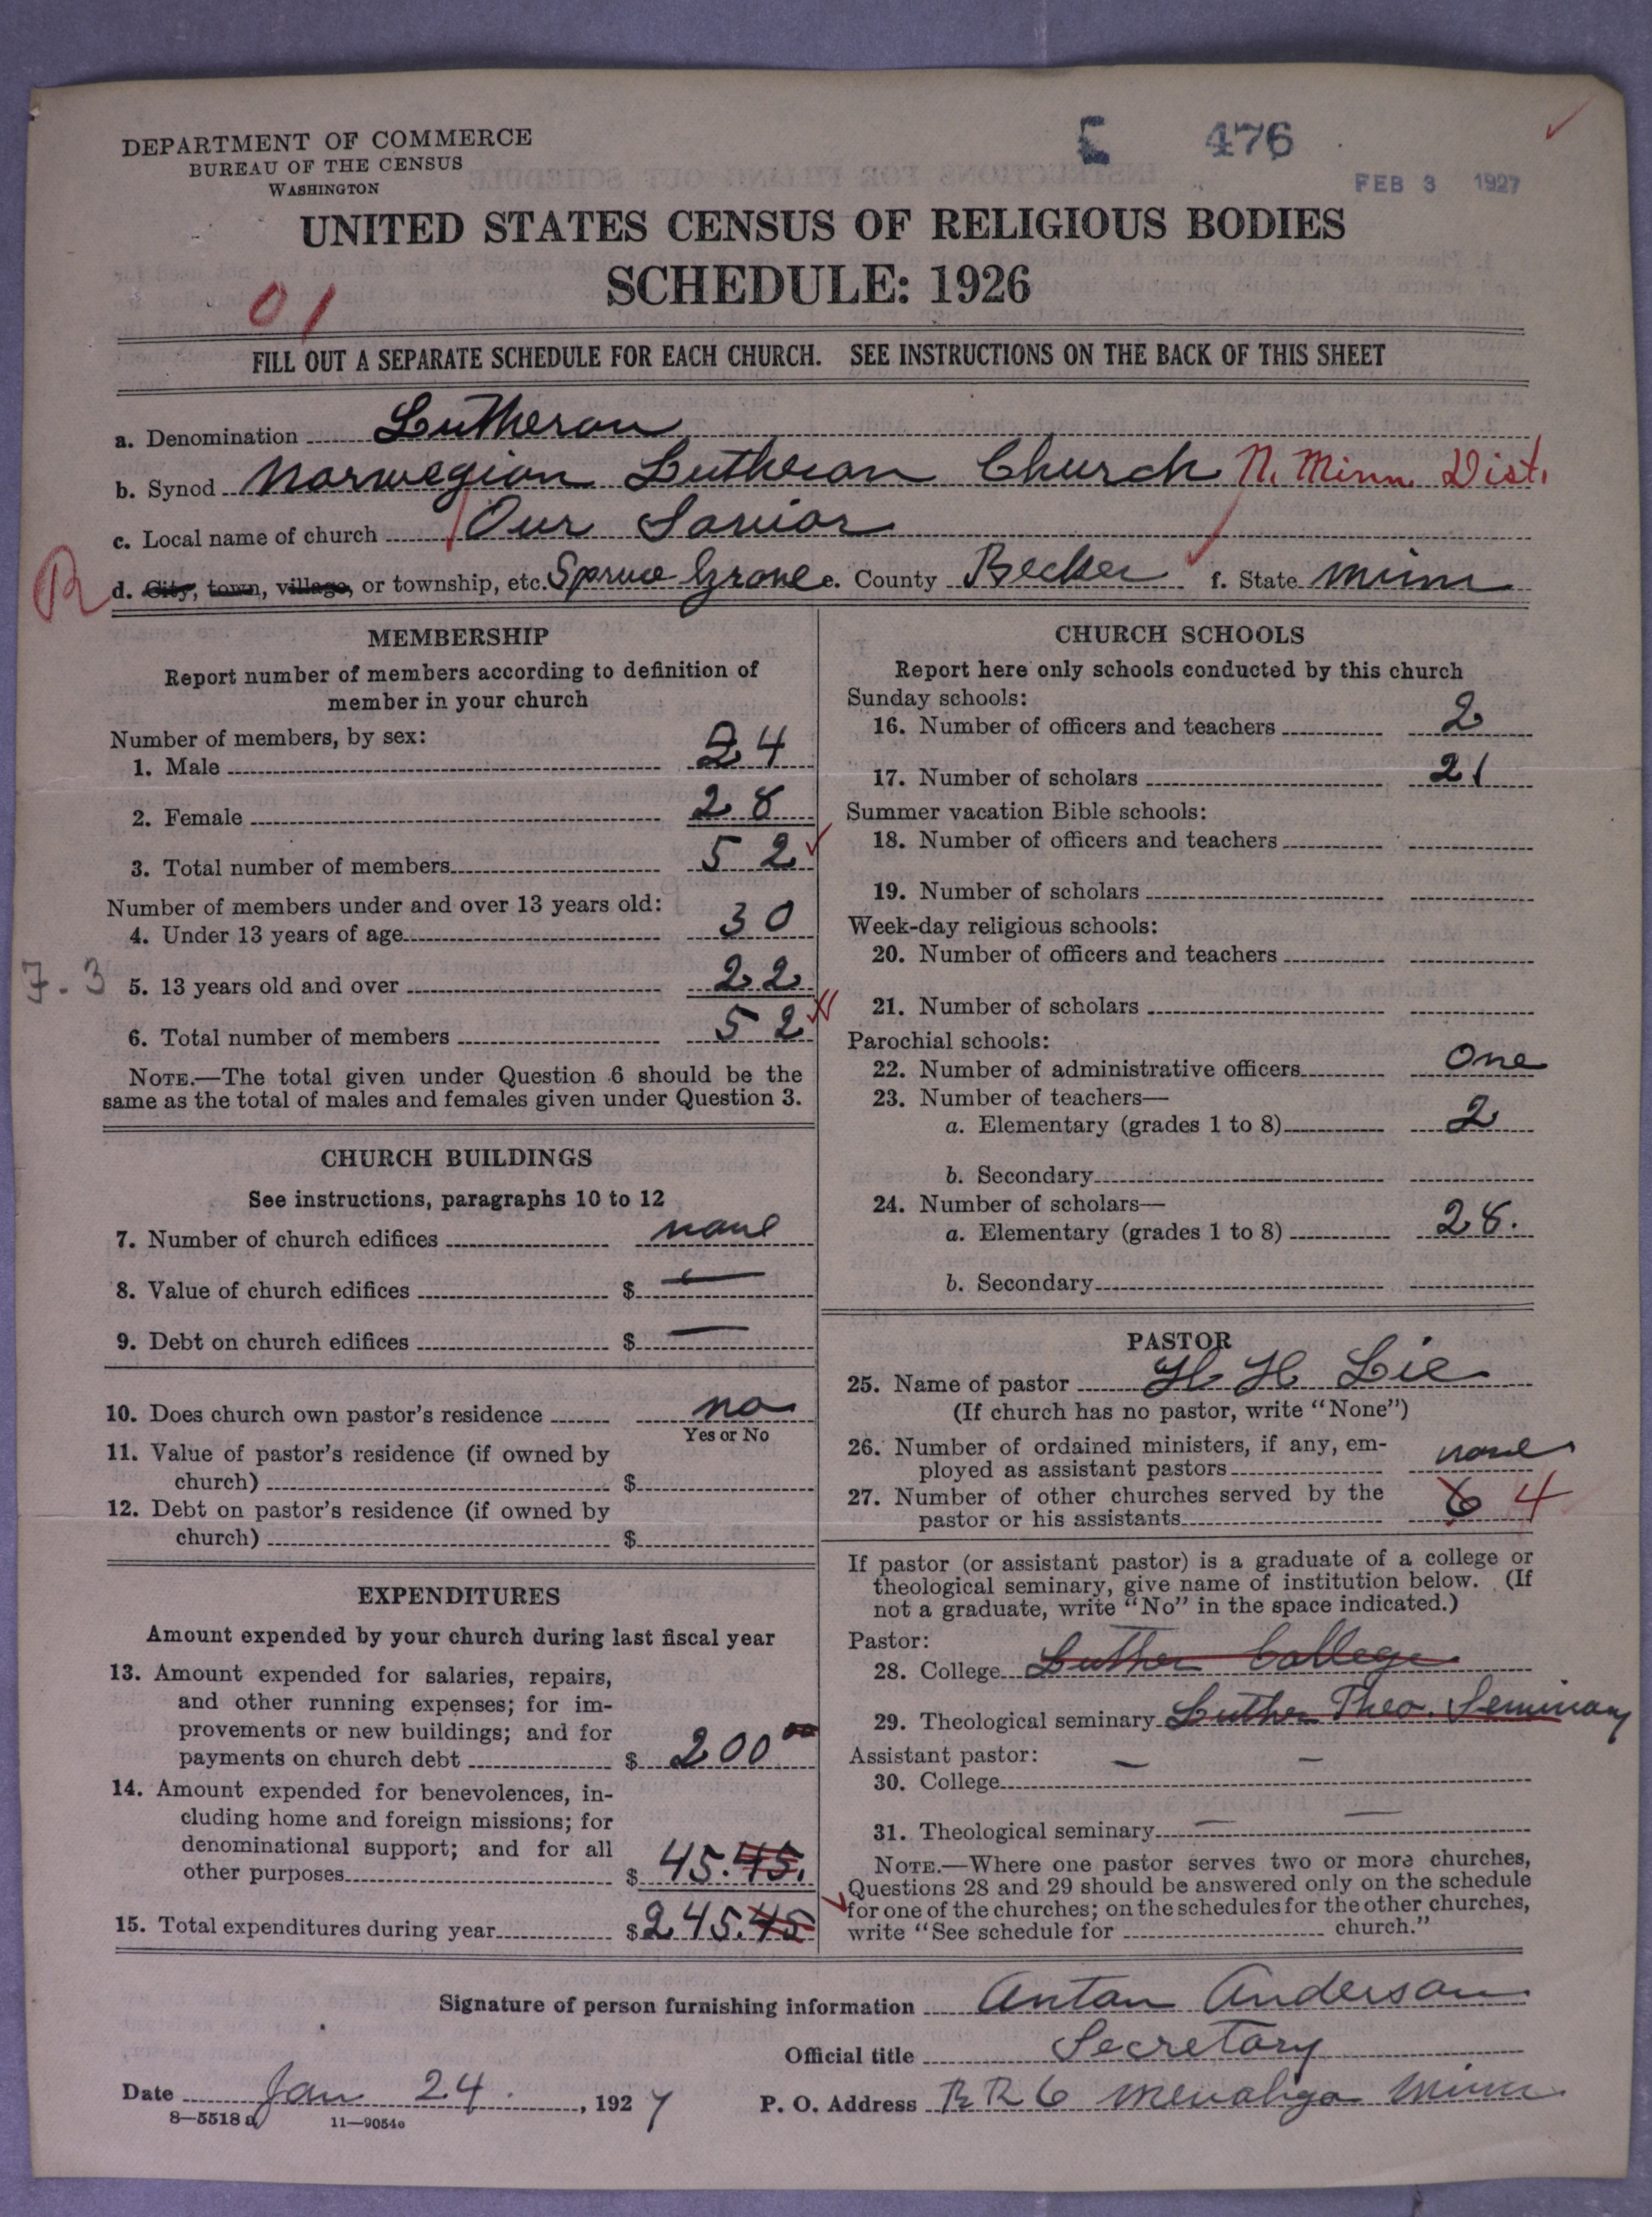 DEPARTMENT OF COMMERCE
BUREAU OF THE CENSUS
WASHINGTON
E 476
FEB 3 1927
UNITED STATES CENSUS OF RELIGIOUS BODIES
SCHEDULE: 1926
01
FILL OUT A SEPARATE SCHEDULE FOR EACH CHURCH. SEE INSTRUCTIONS ON THE BACK OF THIS SHEET
a. Denomination Lutheran
b. Synod Norwegian Lutheran Church N. Minn. Dist.
c. Local name of church Our Savior
R d. City, town, village, or township, etc. Spruce Grove e. County Becker f. State Minn
MEMBERSHIP
Report number of members according to definition of
member in your church
Number of members, by sex:
1. Male 24
2. Female 28
3. Total number of members 52
Number of members under and over 13 years old:
4. Under 13 years of age 30
7-3 5. 13 years old and over 22
6. Total number of members 52
NOTE.—The total given under Question 6 should be the
same as the total of males and females given under Question 3.
CHURCH BUILDINGS
See instructions, paragraphs 10 to 12
7. Number of church edifices none
8. Value of church edifices $ —
9. Debt on church edifices $ —
10. Does church own pastor's residence no
Yes or No
11. Value of pastor's residence (if owned by
church) $
12. Debt on pastor's residence (if owned by
church) $
EXPENDITURES
Amount expended by your church during last fiscal year
13. Amount expended for salaries, repairs,
and other running expenses; for im-
provements or new buildings; and for
payments on church debt $ 200 00
14. Amount expended for benevolences, in-
cluding home and foreign missions; for
denominational support; and for all
other purposes $ 45.45.
15. Total expenditures during year $ 245.45
CHURCH SCHOOLS
Report here only schools conducted by this church
Sunday schools:
16. Number of officers and teachers 2
17. Number of scholars 21
Summer vacation Bible schools:
18. Number of officers and teachers
19. Number of scholars
Week-day religious schools:
20. Number of officers and teachers
21. Number of scholars
Parochial schools:
22. Number of administrative officers One
23. Number of teachers—
a. Elementary (grades 1 to 8) 2
b. Secondary
24. Number of scholars—
a. Elementary (grades 1 to 8) 28.
b. Secondary
PASTOR
25. Name of pastor H H Lie
(If church has no pastor, write "None")
26. Number of ordained ministers, if any, em-
ployed as assistant pastors none
27. Number of other churches served by the
pastor or his assistants 6 4
If pastor (or assistant pastor) is a graduate of a college or
theological seminary, give name of institution below. (If
not a graduate, write "No" in the space indicated.)
Pastor:
28. College Luther College
29. Theological seminary Luther Theo. Seminary
Assistant pastor: — —
30. College
31. Theological seminary —
NOTE.—Where one pastor serves two or more churches,
Questions 28 and 29 should be answered only on the schedule
for one of the churches; on the schedules for the other churches,
write "See schedule for church."
Signature of person furnishing information Anton Anderson
Official title Secretary
Date Jan 24., 1927 P. O. Address R R 6 Menahga Minn.
8—5518a 11—9054c